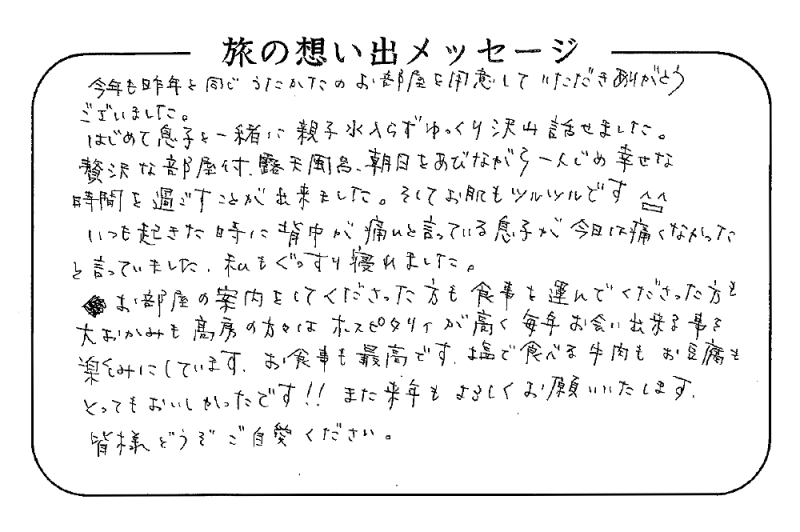 旅の想い出メッセージ
今年も昨年と同じうたかたのお部屋を用意していただきありがとう
ございました。
はじめて息子と一緒に親子水入らずゆっくり沢山話せました。
贅沢な部屋付、露天風呂、朝日をあびながら一人じめ幸せな
時間を過ごすことが出来ました。そしてお肌もツルツルです ^^
いつも起きた時に背中が痛いと言っている息子が今日は痛くなかった
と言っていました。私もぐっすり寝れました。
お部屋の案内をしてくださった方も食事を運んでくださった方も
大おかみも厨房の方々はホスピタリィが高く毎年お会い出来る事を
楽しみにしています。お食事も最高です。塩で食べる牛肉もお豆腐も
とってもおいしかったです!! また来年もよろしくお願いいたします。
皆様どうぞご自愛ください。